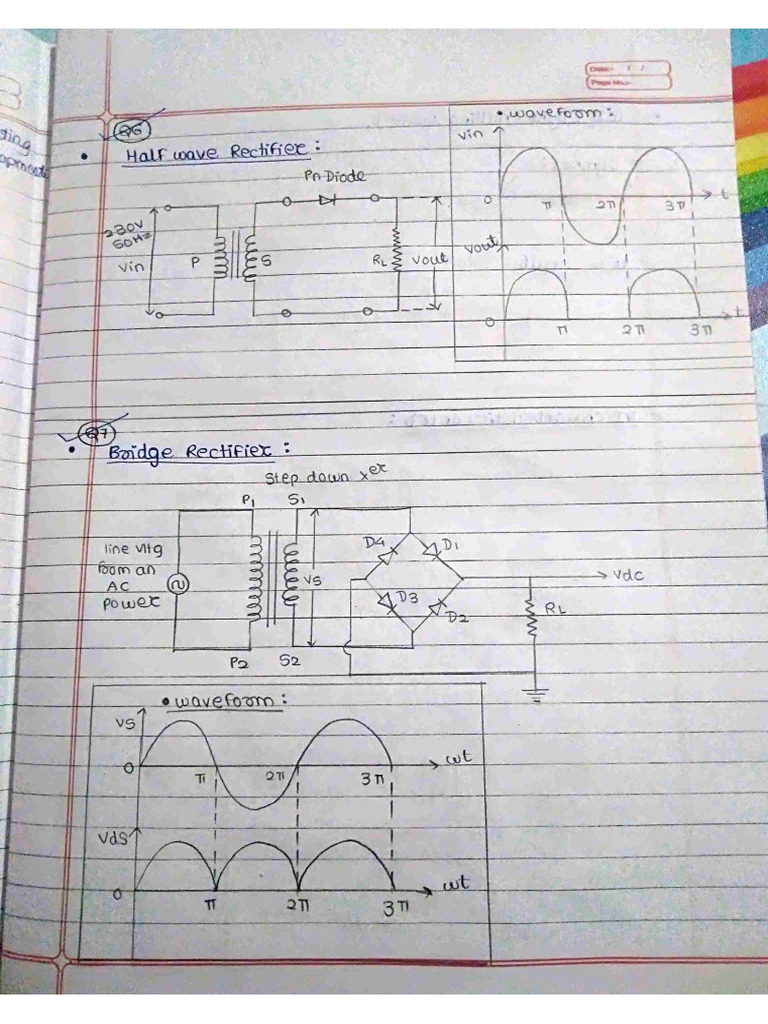 Date:- / /
Page No:-
sting
Q6
• Half wave Rectifier :
• waveform :
Vin
0
π
2π
3π
t
Vout
0
π
2π
3π
t
Pn Diode
230V
50HZ
Vin
P
S
RL
Vout
Q7
• Bridge Rectifier :
Step down xer
P1
S1
line Vltg
from an
AC
power
VS
D4
D1
D3
D2
Vdc
RL
P2
S2
• waveform :
VS
0
π
2π
3π
ωt
VdS
0
π
2π
3π
ωt